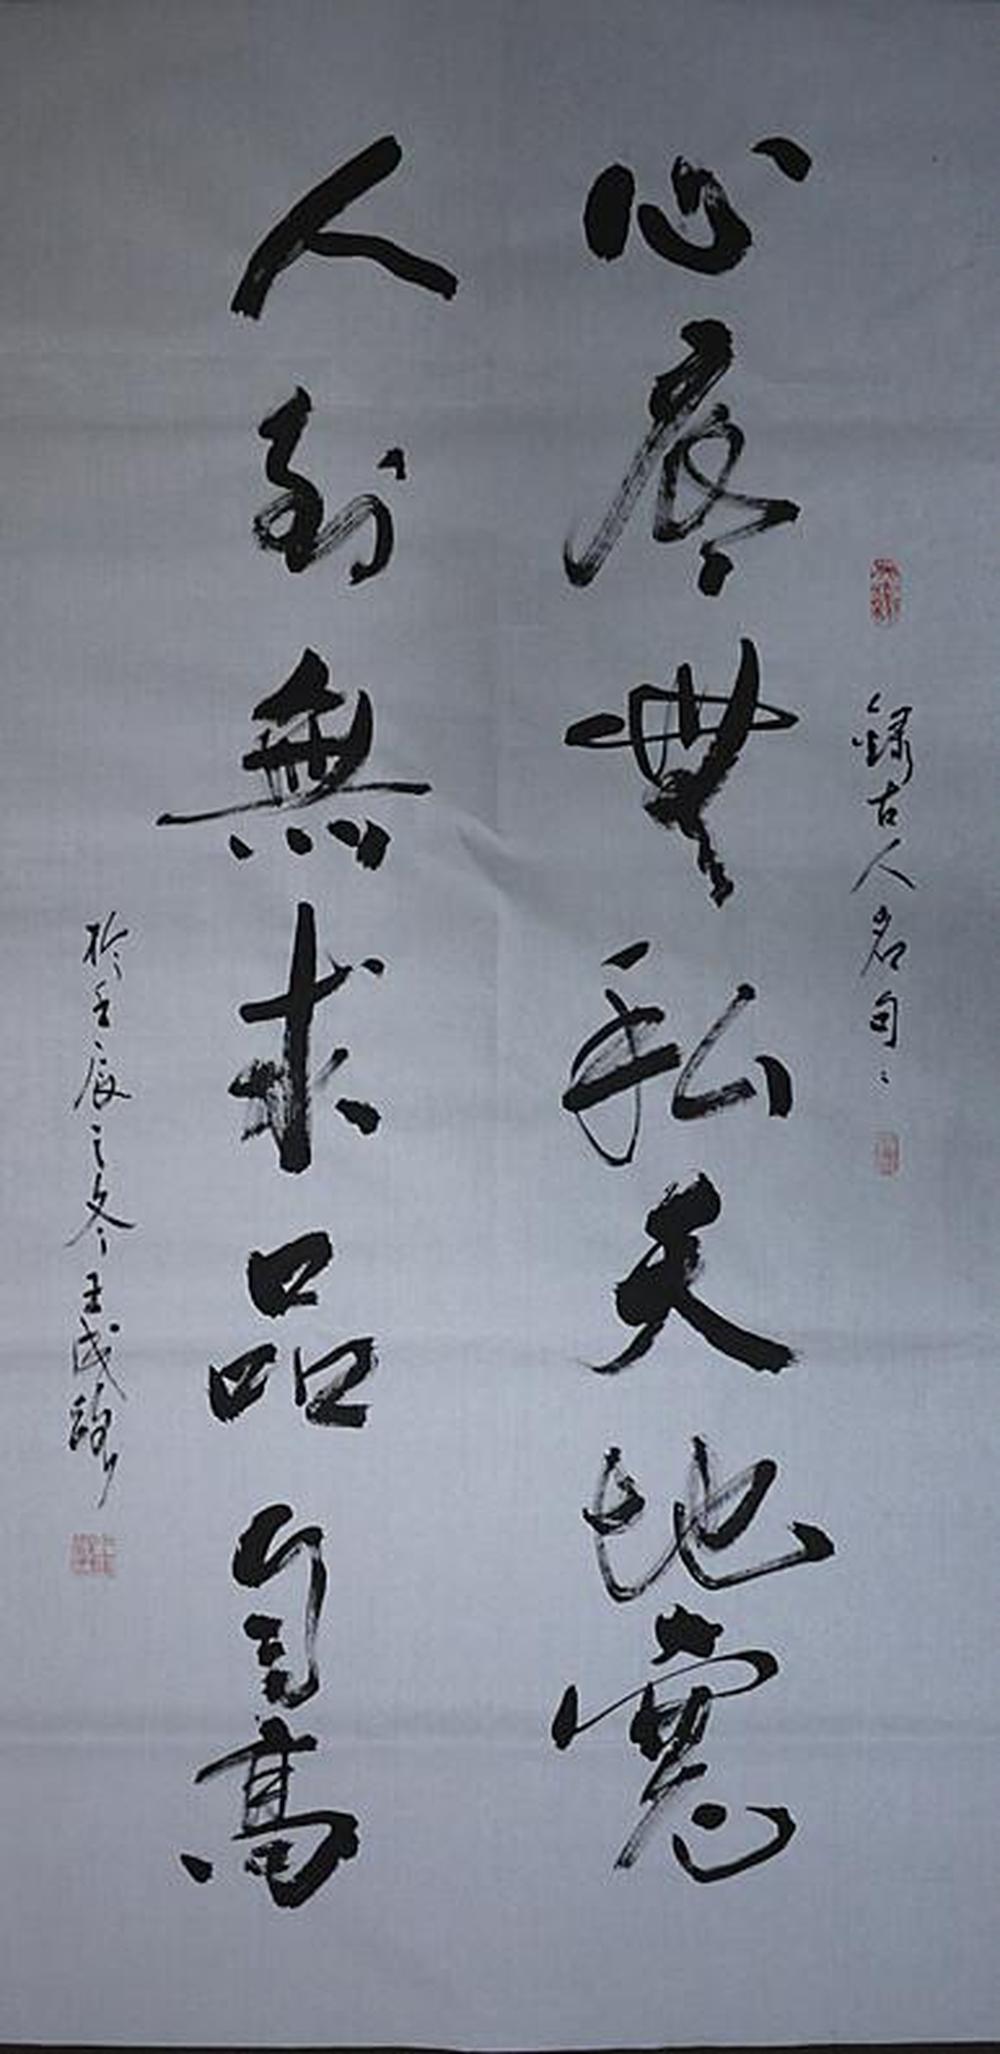 錄古人名句
心底無私天地寬
人到無求品自高
於壬辰之冬王成